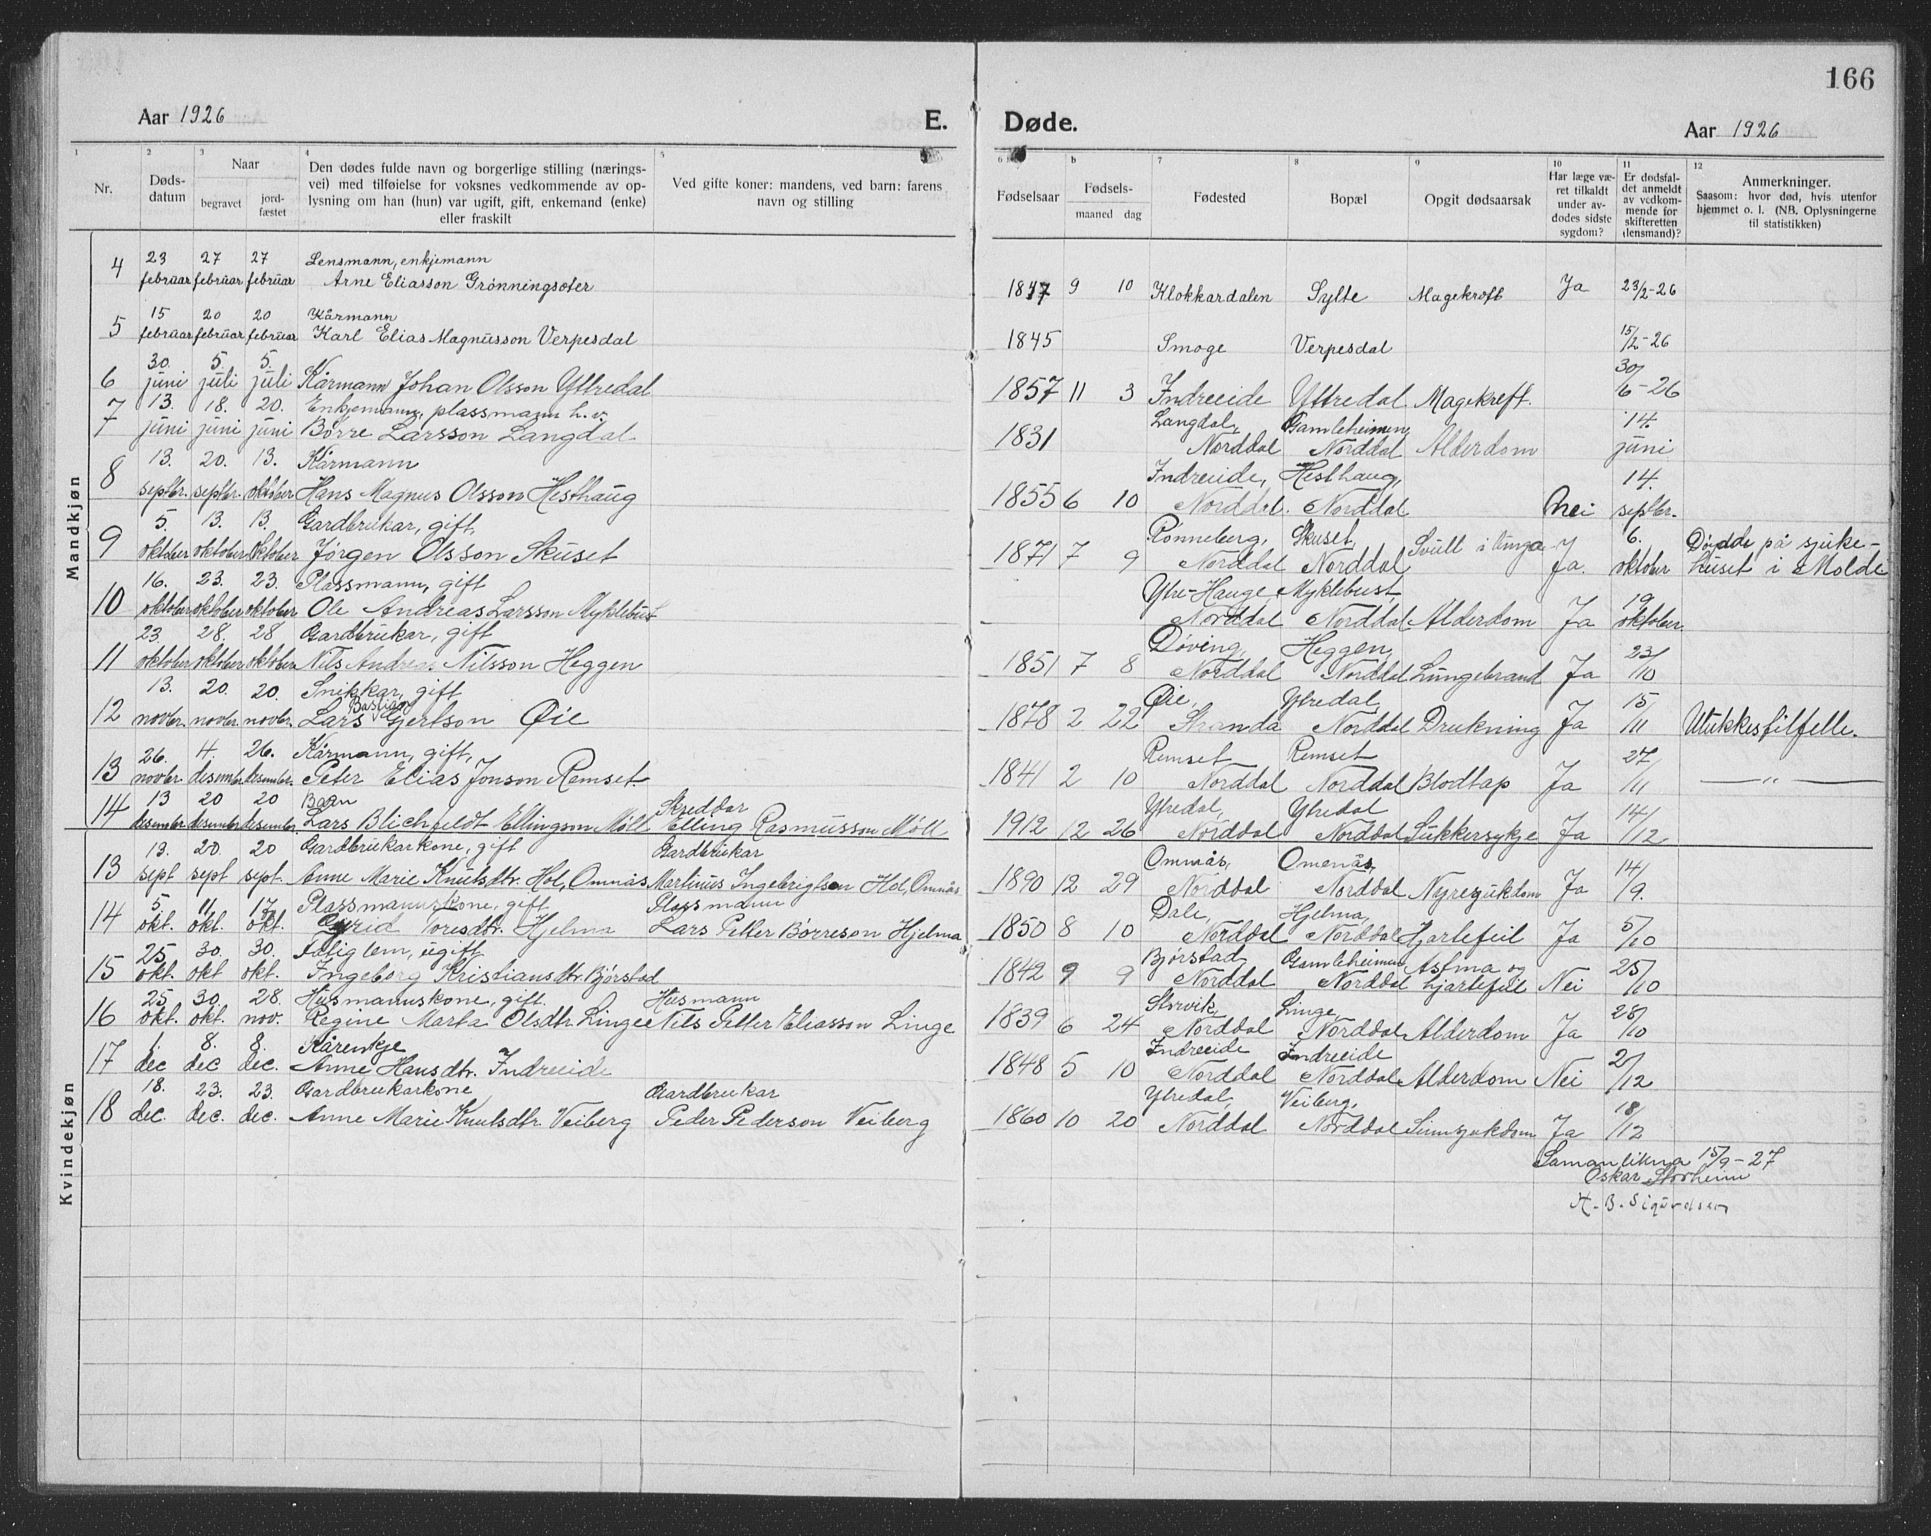 166
Aar 1926 E. Døde. Aar 1926
1 2 3 4 5 6 b 7 8 9 10 11 12
Nr.
Dødsdatum
Naar
begravet
jordfæstet
Den dødes fulde navn og borgerlige stilling (nærings-
vei) med tilføielse for voksnes vedkommende av op-
lysning om han (hun) var ugift, gift, enkemand (enke)
eller fraskilt
Ved gifte koner: mandens, ved barn: farens
navn og stilling
Fødselsaar
Fødsels-
maaned dag
Fødested
Bopæl
Opgit dødsaarsak
Har læge væ-
ret tilkaldt
under av-
dødes sidste
sygdom?
Er dødsfal-
det anmeldt
av vedkom-
mende for
skifteretten
(lensmand)?
Anmerkninger.
Saasom: hvor død, hvis utenfor
hjemmet o. l. (NB. Oplysningerne
til statistikken)
Mandkjøn
23 27 27 Lensmann, enkjemann
4 februar februar februar Arne Eliasson Grønningsæter 1847 9 10 Klokkardalen Sylte Magekroft Ja 23/2-26
15 20 20 Kårmann
5 februar februar februar Karl Elias Magnusson Verpesdal 1845 Smoge Verpesdal 15/2-26
30. 5. 5.
6 juni juli juli Kårmann Johan Olsson Ytredal 1857 11 3 Indreeide Yttredal Magekreft. 30/6-26
13. 18. 20. Enkjemann, plassmann h. v. Langdal, Gamleheimen, 14.
7 juni juni juni Børre Larsson Langdal 1831 Norddal Norddal Alderdom juni
13. 20. 13. Kårmann Indreeide, Hesthaug, 14.
8 septbr. septbr. oktober Hans Magnus Olsson Hesthaug 1855 6 10 Norddal. Norddal Nei septbr.
5. 13. 13. Gardbrukar, gift, Rønneberg, Skuset, 6. Døydde på sjuke-
9 oktober oktober oktober Jørgen Olsson Skuset 1871 7 9 Norddal Norddal Svull i Ja. oktober huset i Molde
16. 23. 23. Plassmann, gift Ytre-Hauge, Myklebust, 19
10 oktober oktober oktober Ole Andreas Larsson Myklebust Norddal Norddal Alderdom Ja oktober
23. 28. 28 Gardbrukar, gift Døving, Heggen,
11 oktober oktober oktober Nils Andreas Nilsson Heggen 1851 7 8 Norddal Norddal Lungebrand Ja 23/10
13. 20. 20. Snikkar, gift Øie, Ytredal,
12 novbr. novbr. novbr. Lars Bastian Gjertson Øie 1878 2 22 Stranda Norddal Drukning Ja 15/11 Ulukkestilfelle.
26. 4. 26. Kårmann, gift, Remset Remset
13 novbr. desember desember. Peter Elias Jonson Remset 1841 2 10 Norddal Norddal Blodtap Ja 27/11 — „ —
13 20 20 Barn Skreddar Ytredal, Ytredal
14 desember desember desember Lars Blichfeldt Ellingson Møll Elling Rasmusson Møll 1912 12 26 Norddal Norddal Sukkersykje Ja 14/12
Kvindekjøn
13. 20. 20 Gardbrukarkone, gift Gardbrukar Omnås, Omenås,
13 sept sept sept. Anne Marie Knutsdtr. Hol, Omnås Martinus Ingebrigtson Hol, Omnås 1890 12 29 Norddal Norddal Nyresjukdom Ja 14/9.
5 11 17 Plassmannskone, gift Plassmann Dale, Hjelma,
14 okt. okt. okt. Toresdtr. Hjelma Lars Petter Børreson Hjelma 1850 8 10 Norddal Norddal Hjartefeil Ja 5/10
25 30. 30. Fatiglem, ugift Bjørstad Gamleheimen Astma og
15 okt. okt okt. Ingeborg Kristiansdtr. Bjørstad 1842 9 9 Norddal Norddal hjartefeil Nei 25/10
25 30. 28. Husmannskone, gift. Husmann Storvik, Linge,
16 okt. okt. nov. Regine Marta Olsdtr. Linge Nils Petter Eliasson Linge 1839 6 24 Norddal Norddal Alderdom Ja 28/10
1 8. 8. Kårenkje Indreeide Indreeide
17 dec dec dec. Anne Hansdtr. Indreeide 1848 5 10 Norddal Norddal Alderdom Nei 2/12
18. 23. 23. Gardbrukarkone Gardbrukar Ytredal, Veiberg,
18 dec dec. dec. Anne Marie Knutsdtr. Veiberg Peder Pederson Veiberg 1860 10 20 Norddal Norddal Sinnsjukdom Ja 18/12
Samanlikna 15/9-27
Oskar Storheim
A. B. Sigurdsen